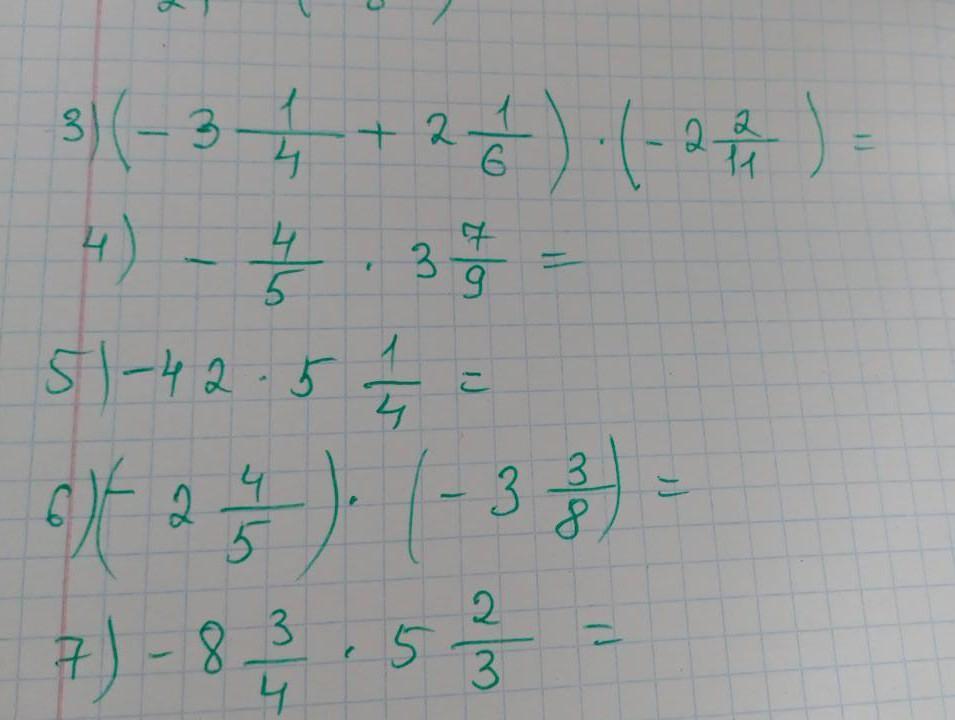 3) (- 3 1/4 + 2 1/6) · (- 2 2/11) =
4) - 4/5 · 3 7/9 =
5) -42 · 5 1/4 =
6) (- 2 4/5) · (- 3 3/8) =
7) - 8 3/4 · 5 2/3 =